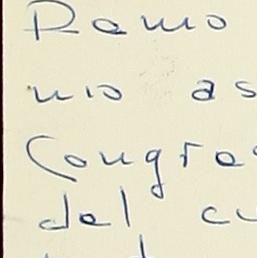 Ramo
nio as
Congre
del cu